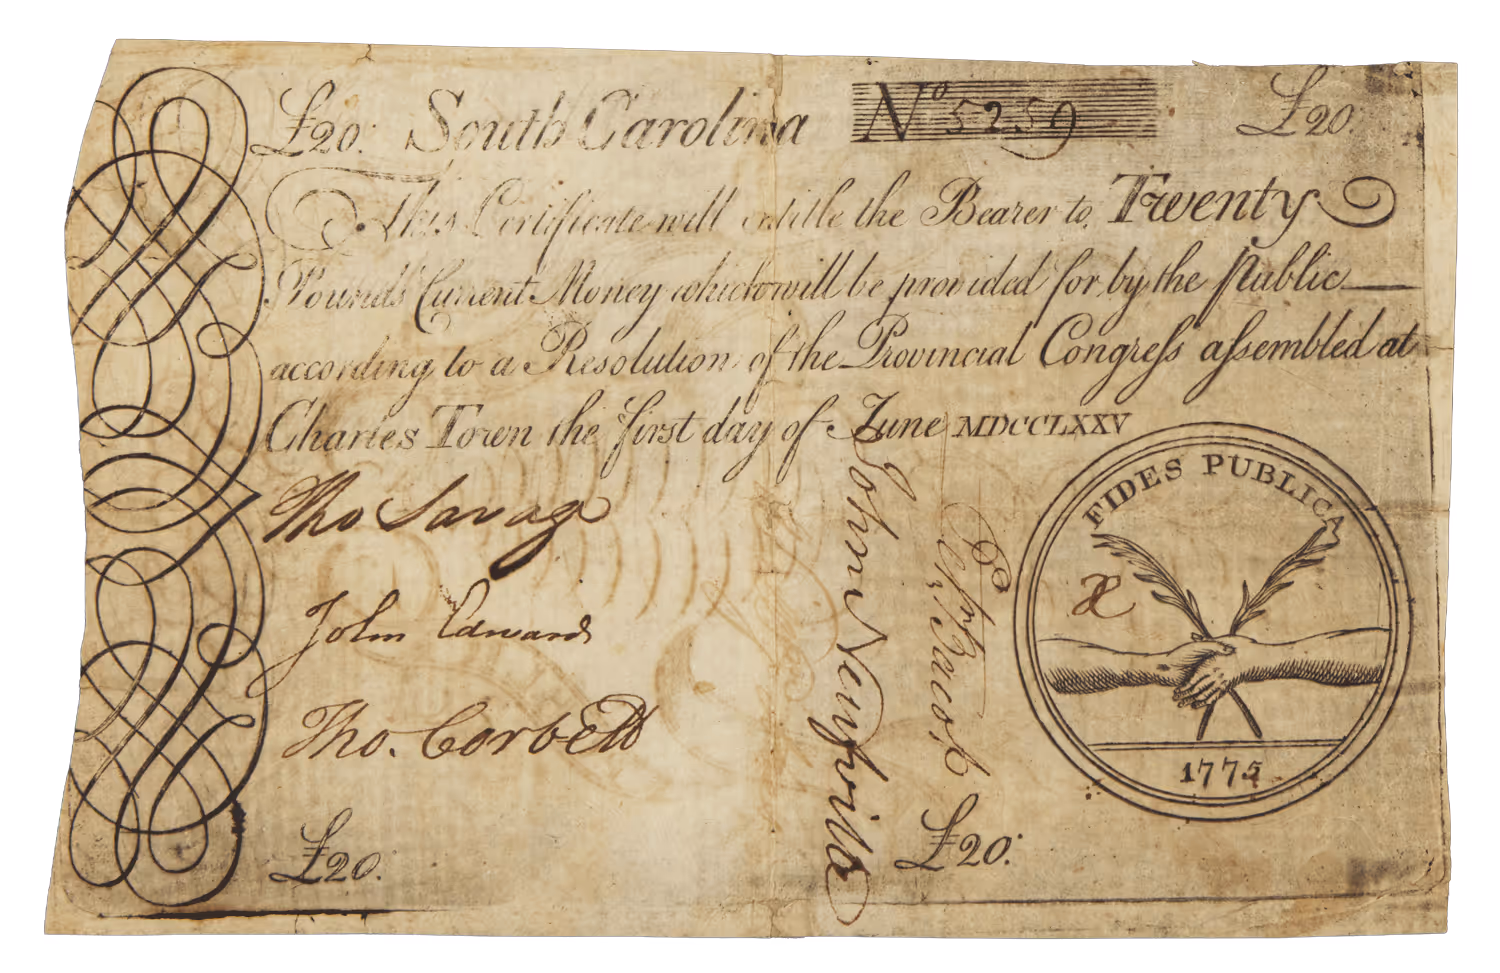 £20. South Carolina No 5259 £20.
This Certificate will entitle the Bearer to Twenty
Pounds Current Money which will be provided for by the Public
according to a Resolution of the Provincial Congreſs aſsembled at
Charles Town the first day of June MDCCLXXV
Tho Savage
John Edwards
Tho. Corbett
John Neufville
Petr Bacot
FIDES PUBLICA
Æ
1775
£20.
£20.